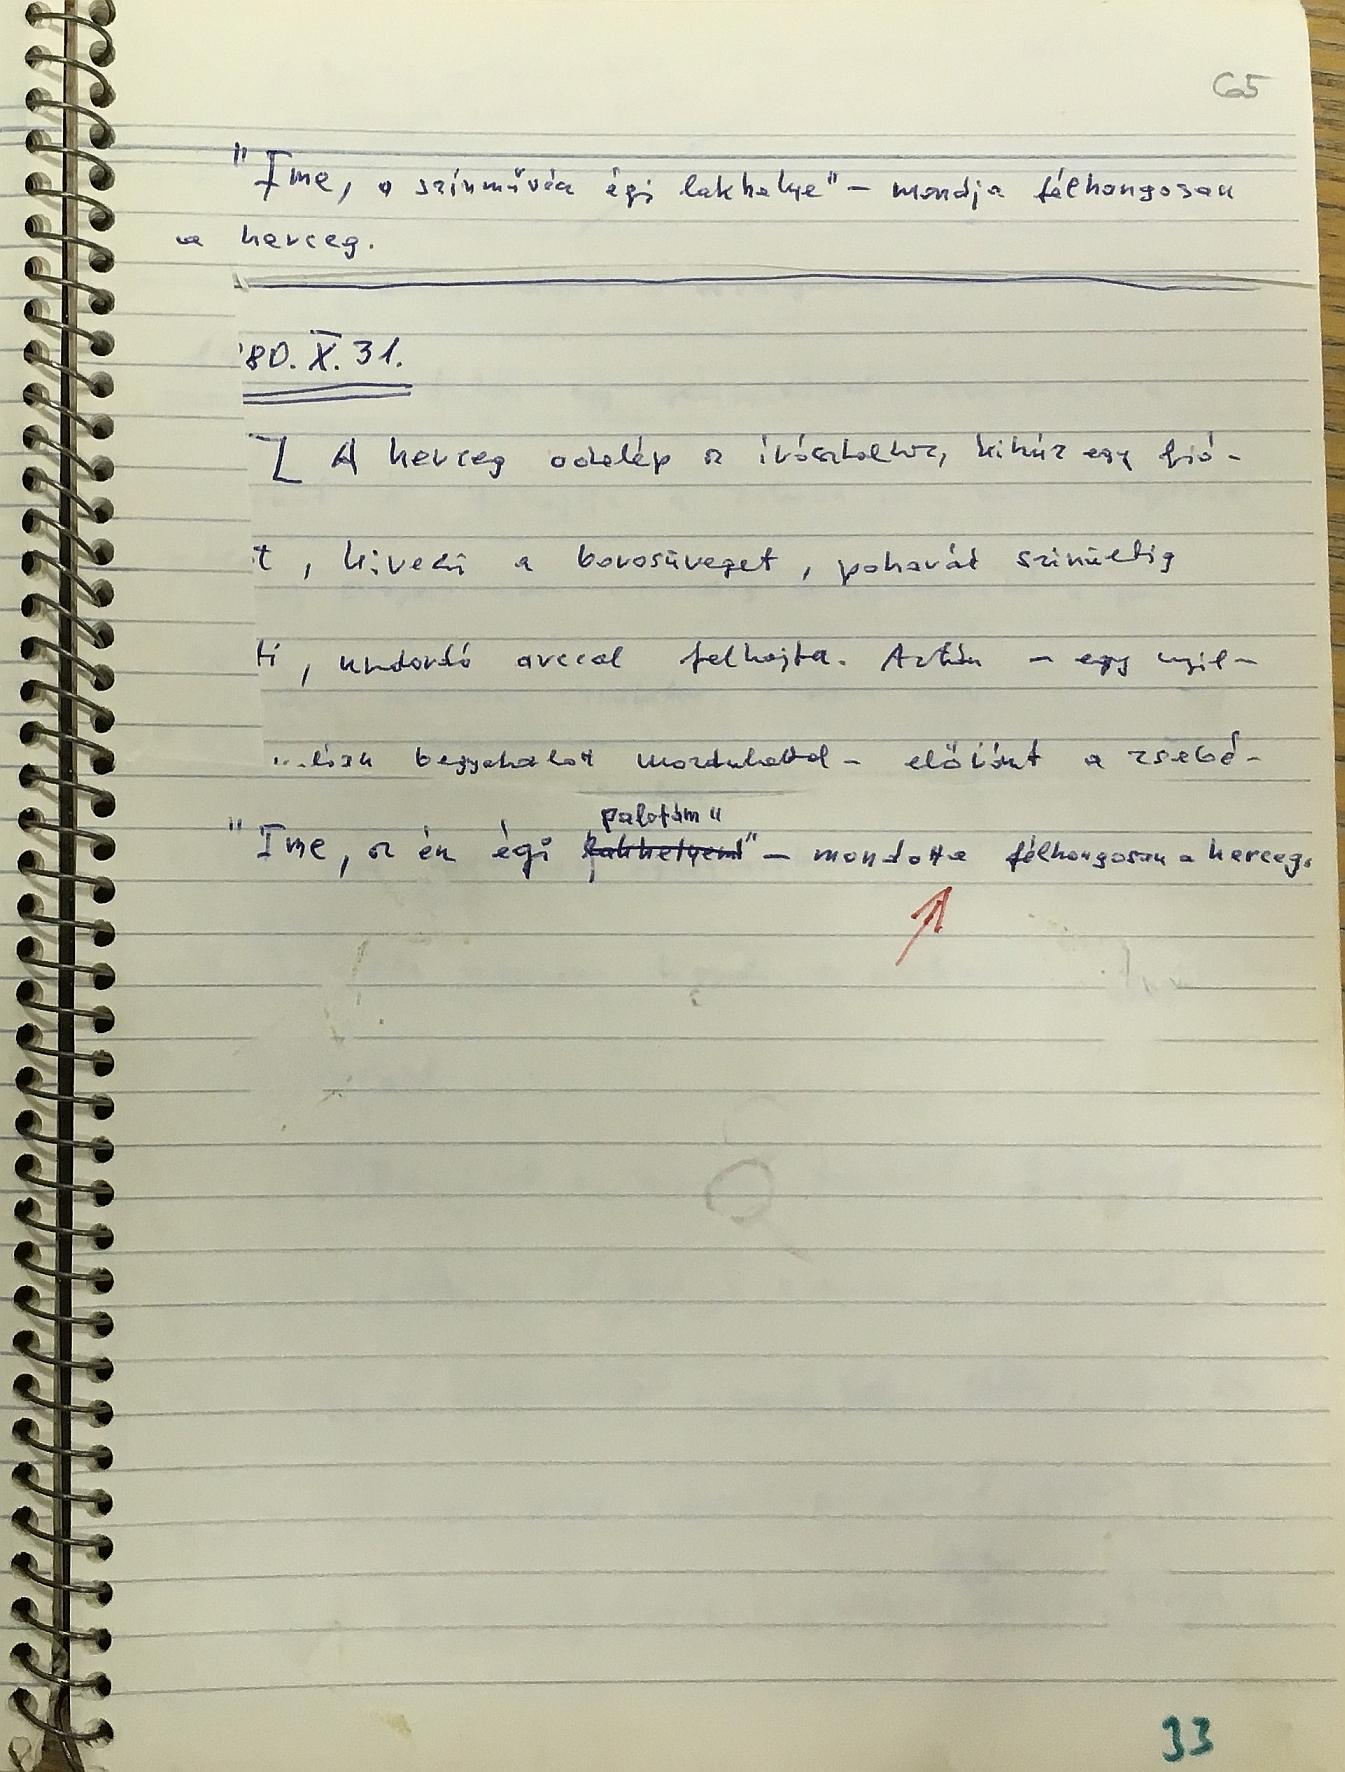 65
"Ime, a színművész égi lakhelye" – mondja félhangosan
a herceg.
'80. X. 31.
[ A herceg odalép az íróasztalhoz, kihúz egy fió-
t, kiveszi a borosüveget, poharát színültig
ti, undorodó arccal felhajtja. Aztán – egy nyil-
begyakorolt mozdulattal – előránt a zsebé-
palotám"
"Ime, az én égi lakhelyem" – mondotta félhangosan a herceg.
33